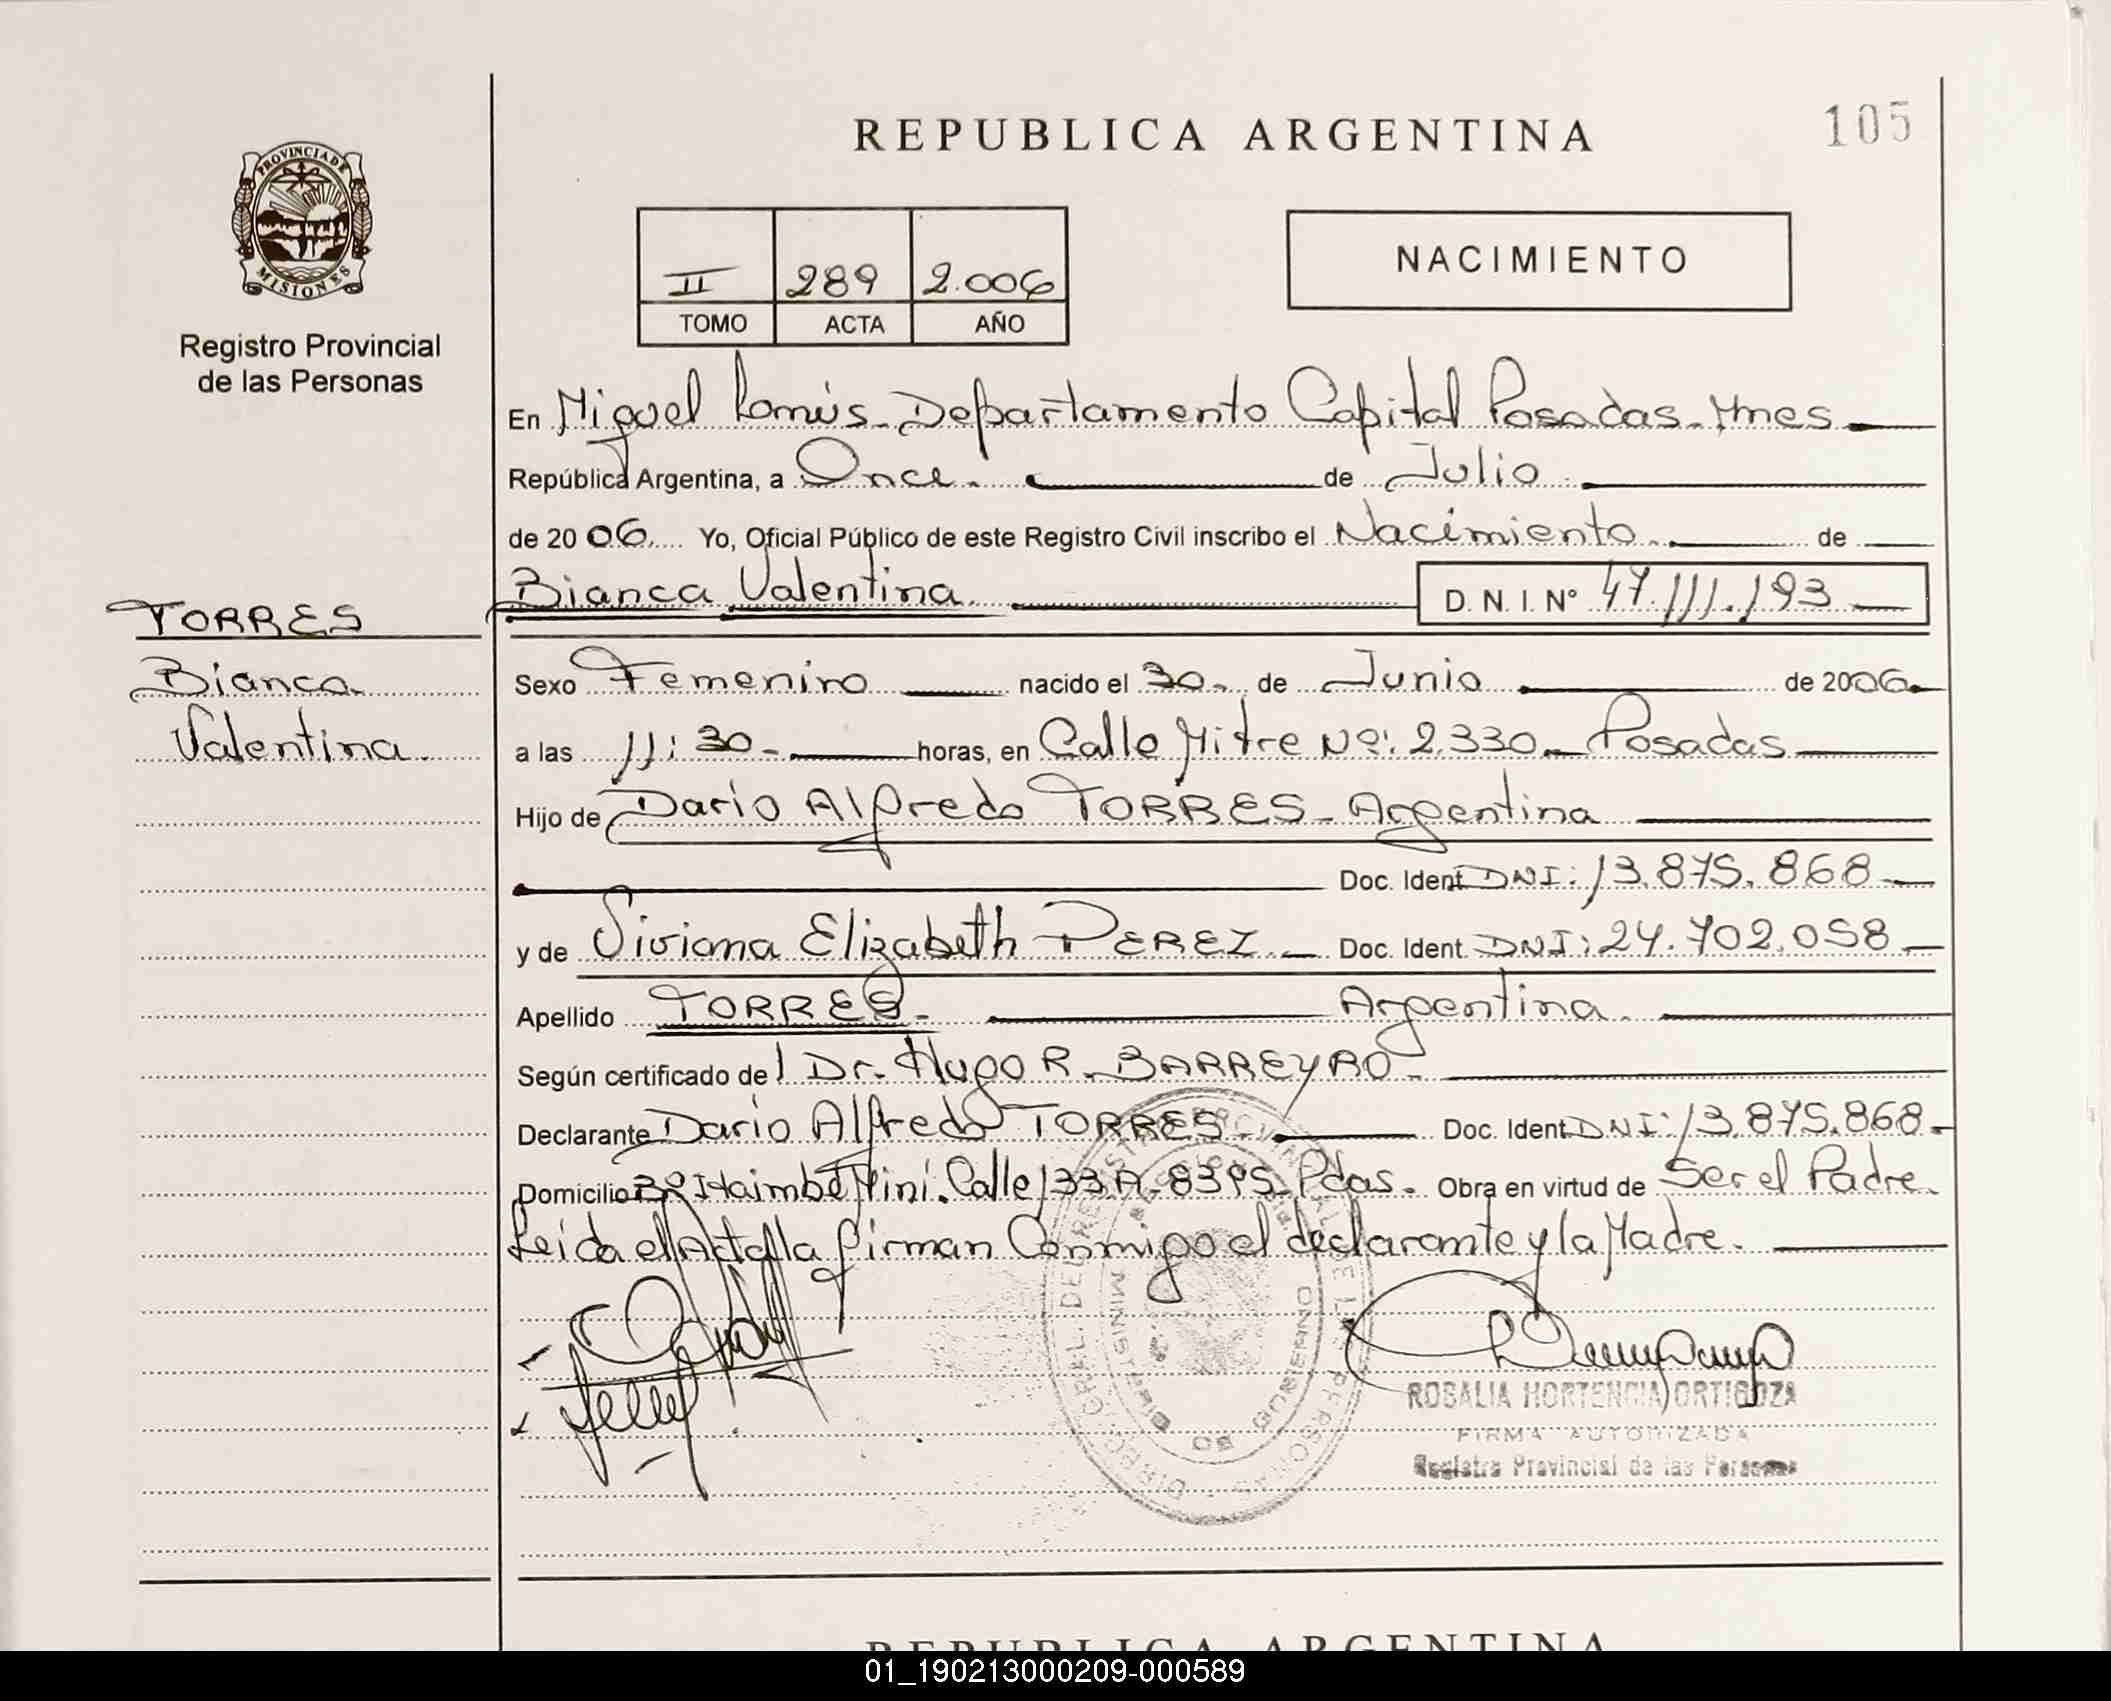 REPUBLICA ARGENTINA
105
PROVINCIA DE
MISIONES
Registro Provincial
de las Personas
II 289 2.006
TOMO ACTA AÑO
NACIMIENTO
En Miguel Lanús - Departamento Capital Posadas - Mnes
República Argentina, a Once. de Julio
de 2006. Yo, Oficial Público de este Registro Civil inscribo el Nacimiento. de
Bianca Valentina D. N. I. N° 47.111.193
TORRES
Bianca
Valentina.
Sexo Femenino nacido el 30. de Junio de 2006
a las 11:30 - horas, en Calle Mitre Nº: 2.330 - Posadas
Hijo de Darío Alfredo TORRES - Argentina
Doc. Ident. DNI: 13.875.868
y de Viviana Elizabeth PEREZ. - Doc. Ident. DNI: 24.702.058
Apellido TORRES - Argentina.
Según certificado del Dr. Hugo R. BARREYRO -
Declarante Darío Alfredo TORRES - Doc. Ident. DNI: 13.875.868 -
Domicilio Bº Itaimbé Miní. Calle 133 A - 8395 - Pdas. Obra en virtud de Ser el Padre.
Leída el Acta la firman Conmigo el declarante y la Madre.
ROSALIA HORTENCIA ORTIGOZA
FIRMA AUTORIZADA
Registro Provincial de las Personas
REPUBLICA ARGENTINA
01_190213000209-000589